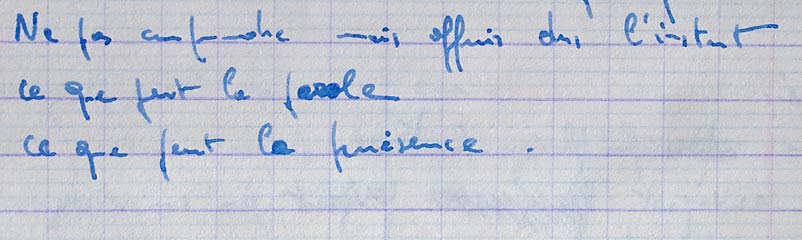 Ne pas comprendre mais offrir dans l'instant
ce que peut la parole
ce que peut la présence.